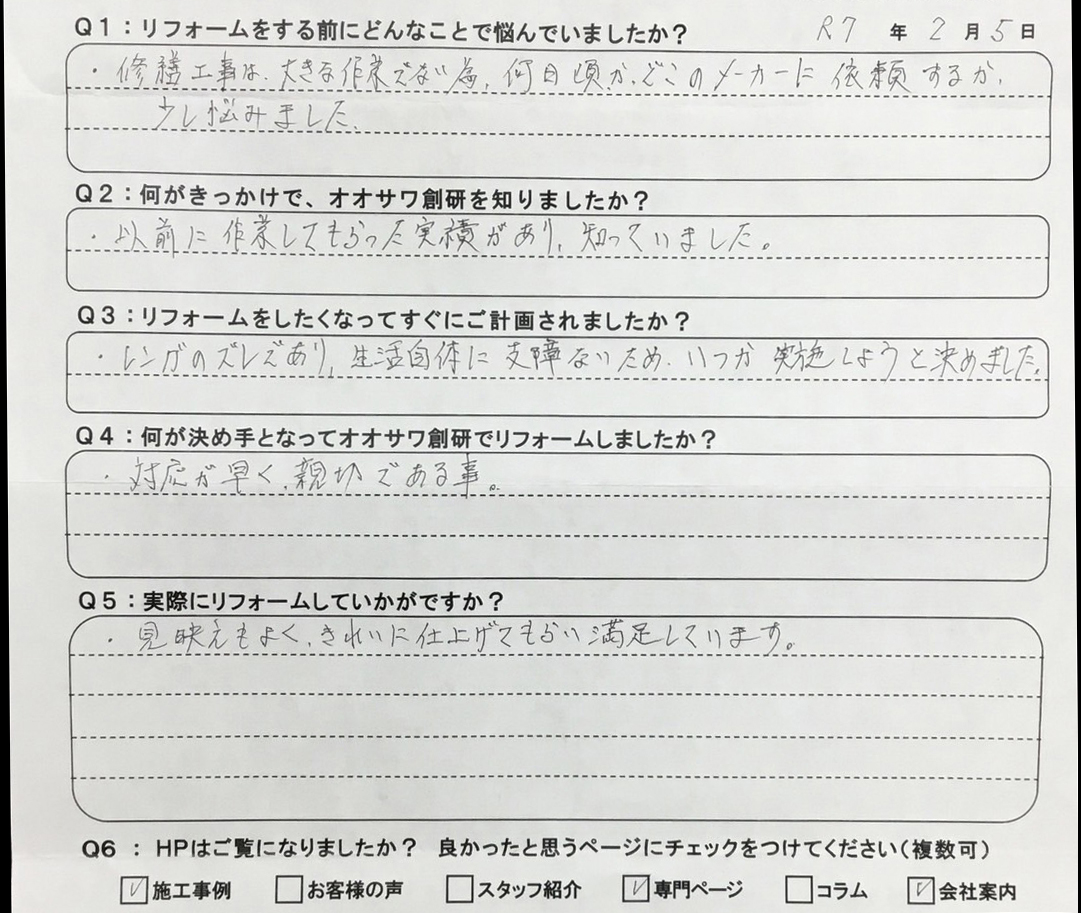 Q1：リフォームをする前にどんなことで悩んでいましたか？ R7 年 2 月 5 日
・修繕工事は、大きな作業でない為、何日頃か、どこのメーカーに依頼するか、
少し悩みました。
Q2：何がきっかけで、オオサワ創研を知りましたか？
・以前に作業してもらった実績があり、知っていました。
Q3：リフォームをしたくなってすぐにご計画されましたか？
・レンガのズレであり、生活自体に支障ないため、いつか実施しようと決めました。
Q4：何が決め手となってオオサワ創研でリフォームしましたか？
・対応が早く、親切である事。
Q5：実際にリフォームしていかがですか？
・見映えもよく、きれいに仕上げてもらい満足しています。
Q6 ： HPはご覧になりましたか？ 良かったと思うページにチェックをつけてください（複数可）
☑施工事例 □お客様の声 □スタッフ紹介 ☑専門ページ □コラム ☑会社案内